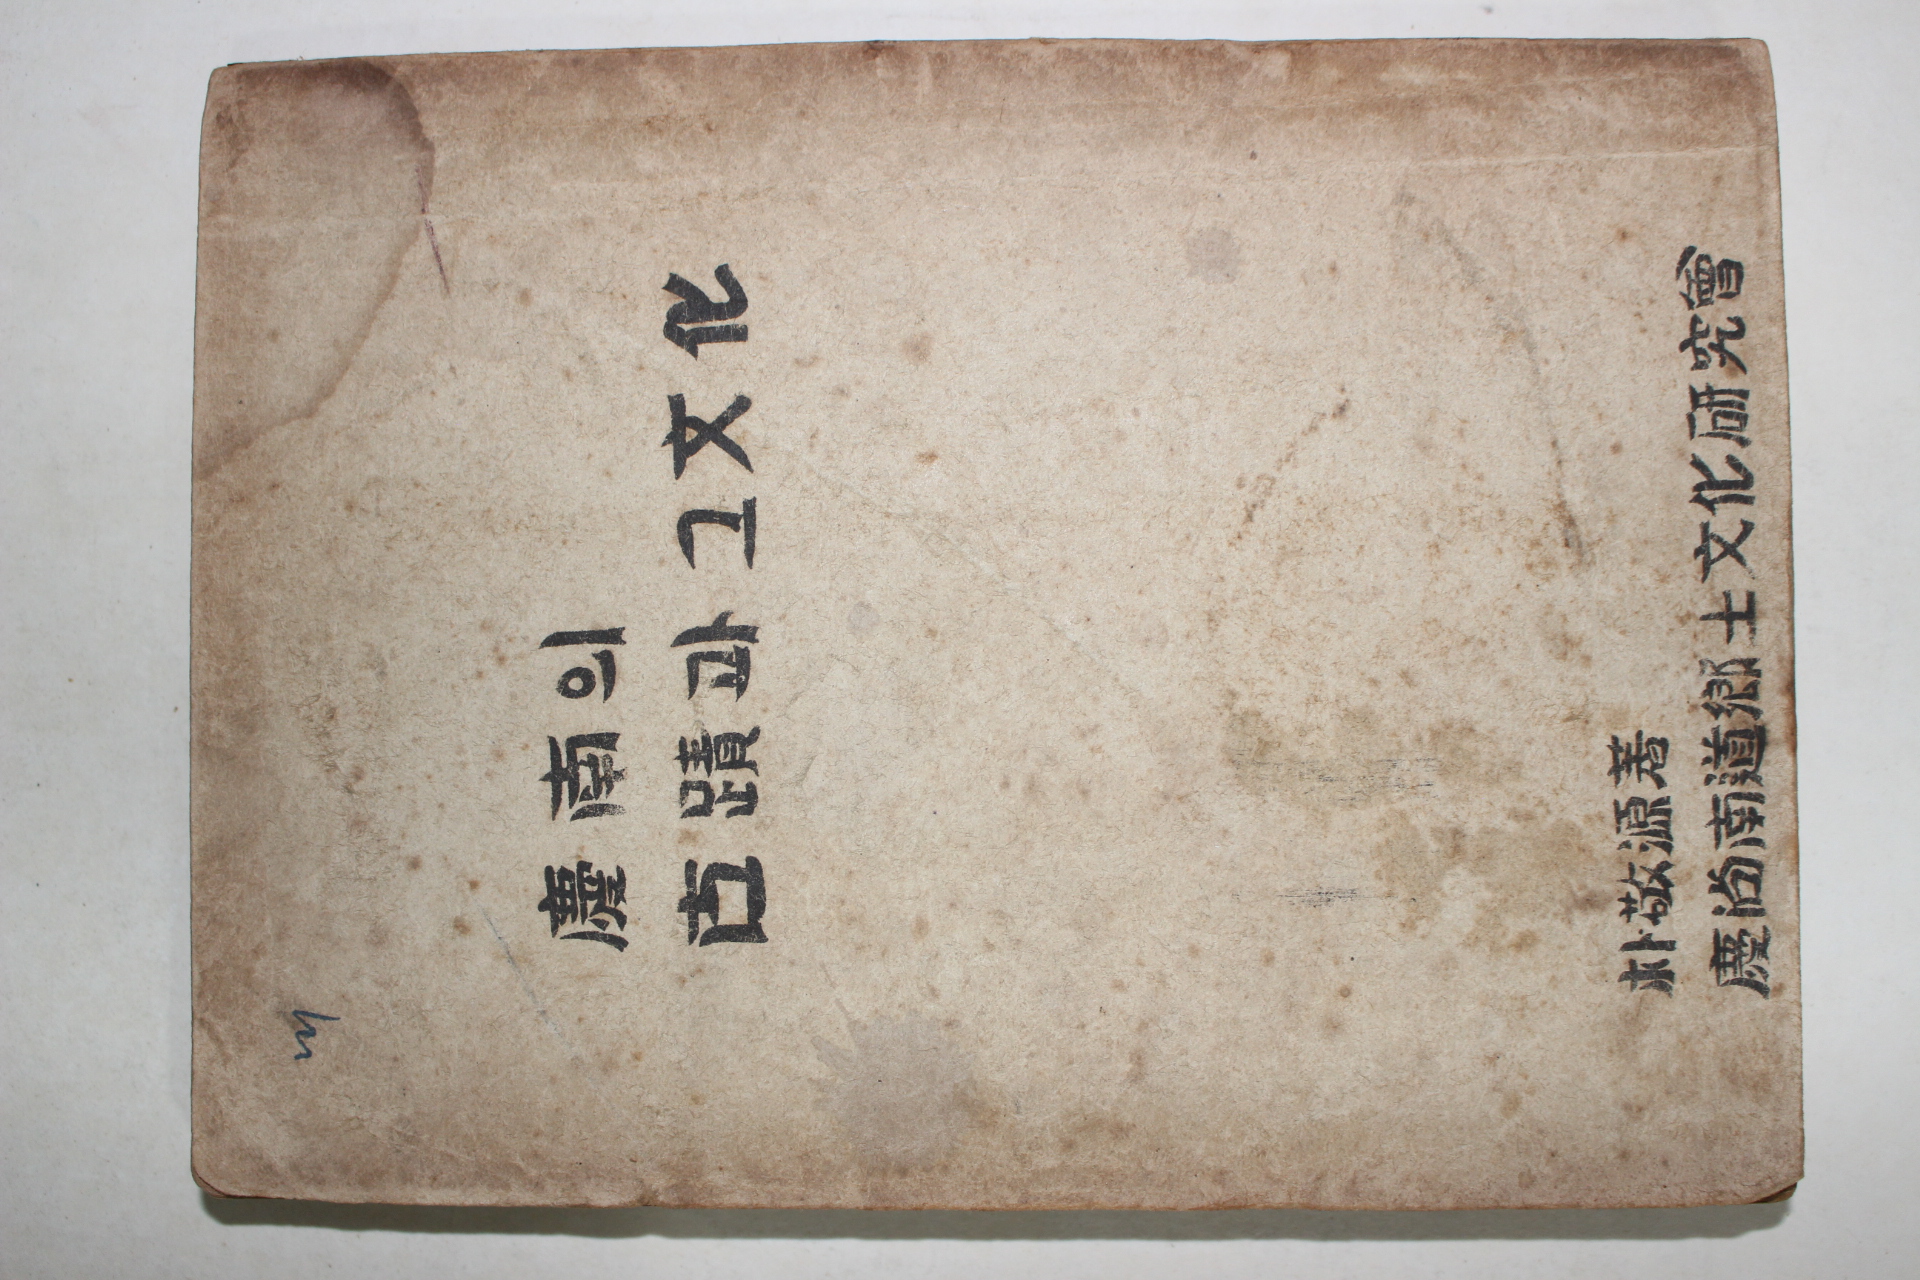 慶南의
古蹟과 그 文化
朴敬源著
慶尙南道鄕土文化硏究會